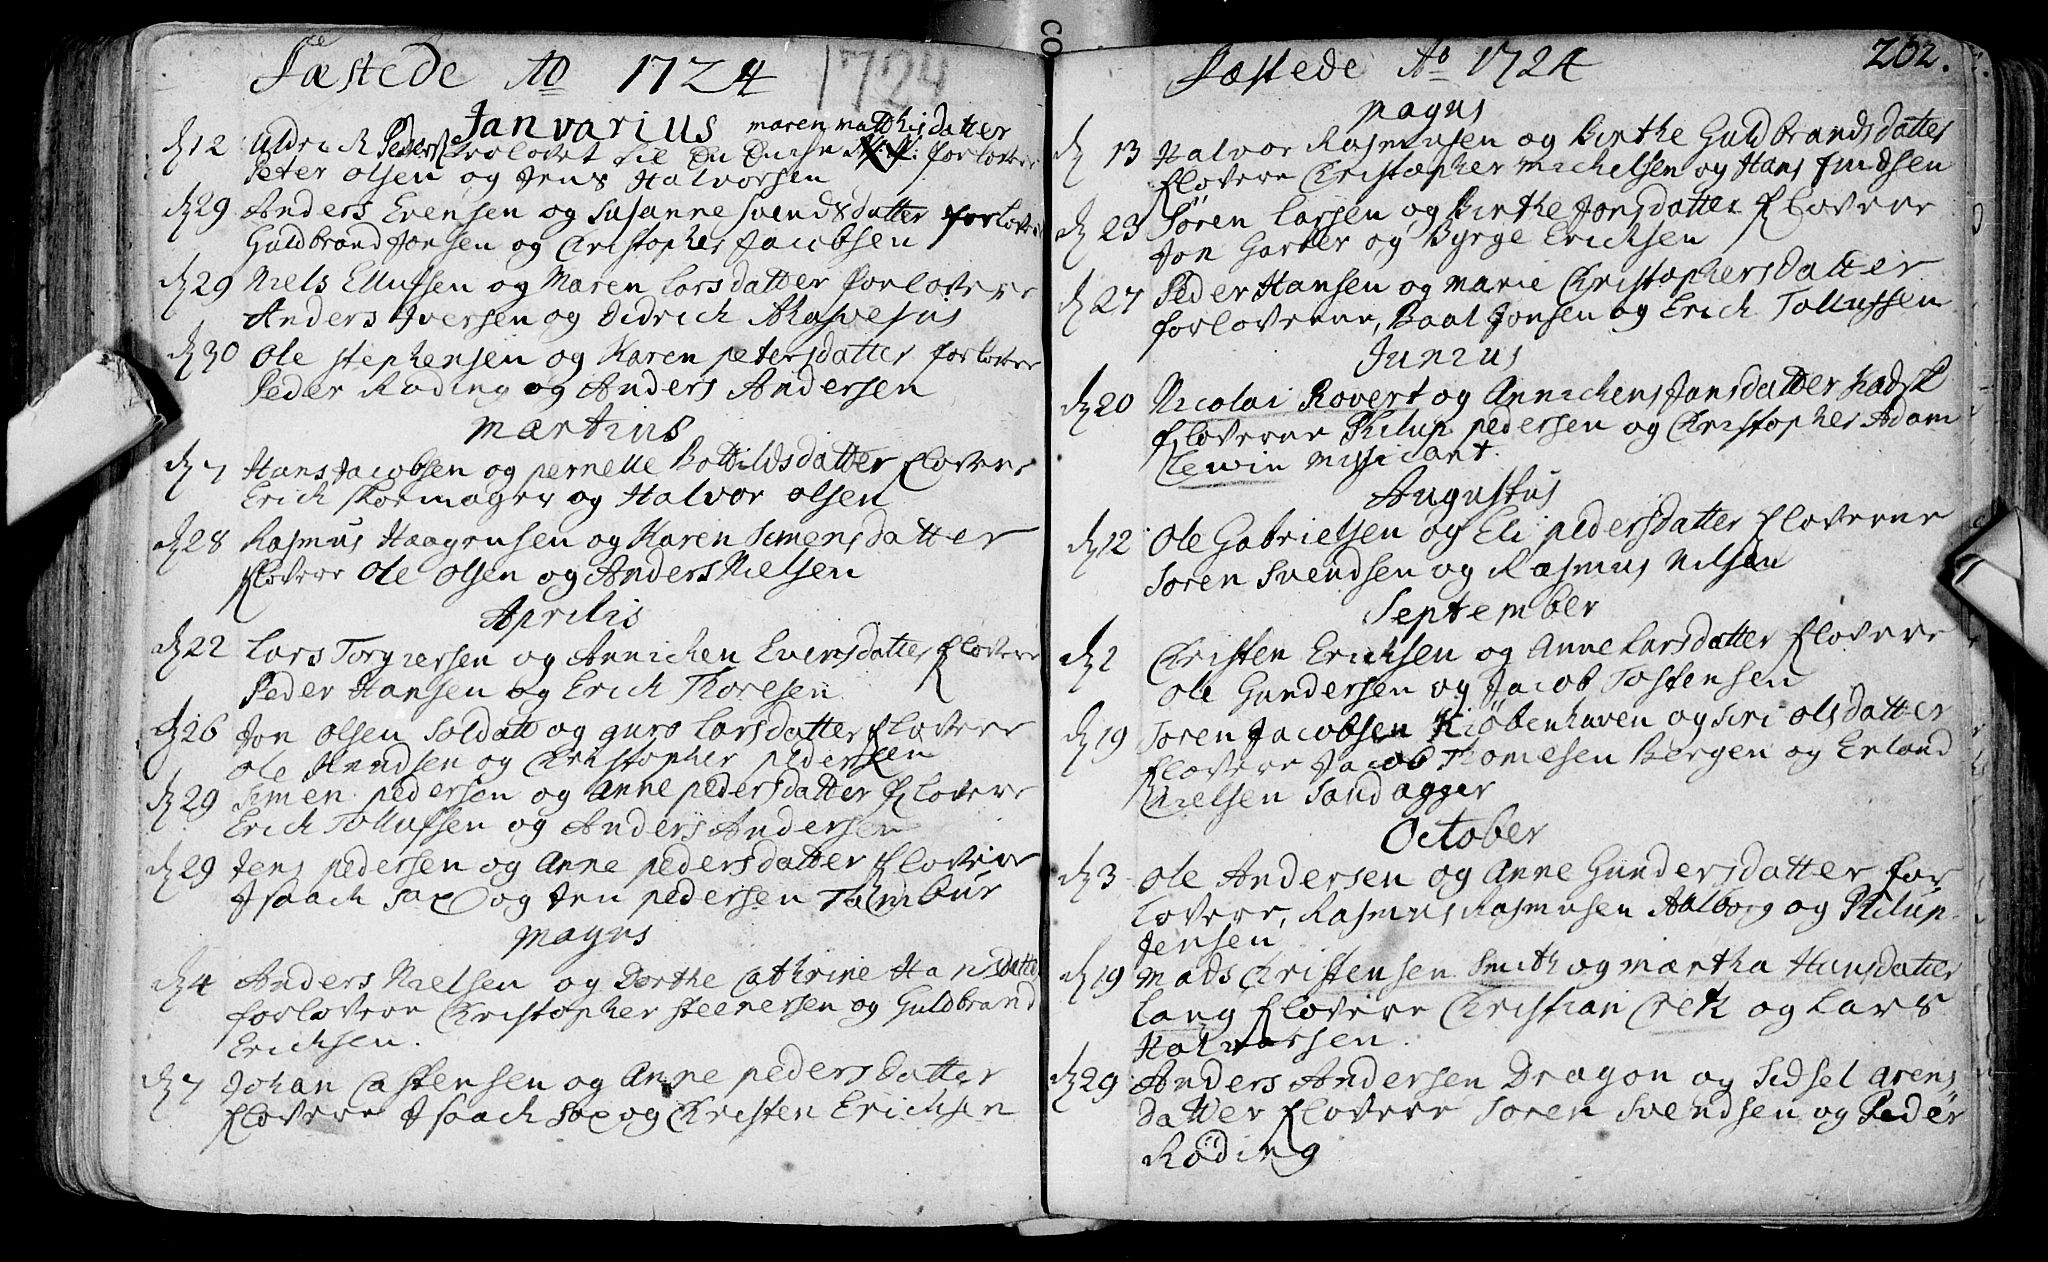 Fæstede Ao 1724 1724
Janvarius maren matthisdatter
d 12 Uldrich Peders: trolovet til En Enche N:N: forlovere
Peter Olsen og Jens Halvorsen
d 29 Anders Evensen og Susanne Svendsdatter forlovere
Guldbrand Jonsen og Christopher Jacobsen
d 29 Niels Ellufsen og Maren Larsdatter forlovere
Anders Iversen og Didrich
d 30 Ole Stephensen og Karen petersdatter forlovere
Peder Roding og Anders Andersen
Martius
d 7 Hans Jacobsen og pernelle Bottildsdatter flovere
Erich skoemager og Halvor olsen
d 28 Rasmus Haagensen og Karen Simensdatter
flovere Ole Olsen og Anders Nielsen
Aprilis
d 22 Lars Torgersen og Annichen Evensdatter flovere
Peder Hansen og Erich Thoresen
d 26 Jon Olsen Soldatt og guro Larsdatter flovere
Ole Knudsen og Christopher pedersen
d 29 Simen pedersen og Anne pedersdatter flovere
Erich Tollufsen og Anders Andersen
d 29 Jens pedersen og Anne pedersdatter flovere
Isaach Sax og Jen pedersen Tambur
Majus
d 4 Anders Nielsen og Dorthe Cathrine Hansdatter
forlovere Christopher Steenersen og Guldbrand
Erichsen.
d 7 Johan Castensen og Anne pedersdatter
flovere Isaach Sax og Christen Erichsen
Fæstede Ao 1724 262.
Majus
d 13 Halvor Rasmusen og Birthe Guldbrandsdatter
flovere Christopher Michelsen og Hans Knudsen
d 23 Søren Larsen og Birthe Jonsdatter flovere
Jon Garver og Byrge Ericksen
d 27 Peder Hansen og Marie Christophersdatter
forloverne, Baal Jonsen og Erich Tollufsen
Junius
d 20 Nicolai Rovert og Annichen Jansdatter
floverne Philup pedersen og Christopher Adam
Clewin Mussicant
Augustus
d 12 Ole Gabrielsen og Eli pedersdatter floverne
Soren Svendsen og Rasmus Nilsen
September
d 2 Christen Erichsen og Anne Larsdatter flovere
Ole Gundersen og Jacob Tostensen
d 19 Soren Jacobsen Kiöbenhaven og Siri olsdatter
flovere Jacob Thomesen Bergen og Erland
Nielsen Sandagger
October
d 3 Ole Andersen og Anne Gundersdatter for
lovere, Rasmus Rasmusen Aalborg og Philup
Jensen
d 19 Mads Christensen Smith og Martha Hansdatter
Lang flovere Christian Creth og Lars
Halvorsen.
d 29 Anders Andersen Dragon og Sidsel arens
datter flovere Soren Svendsen og Peder
Röding